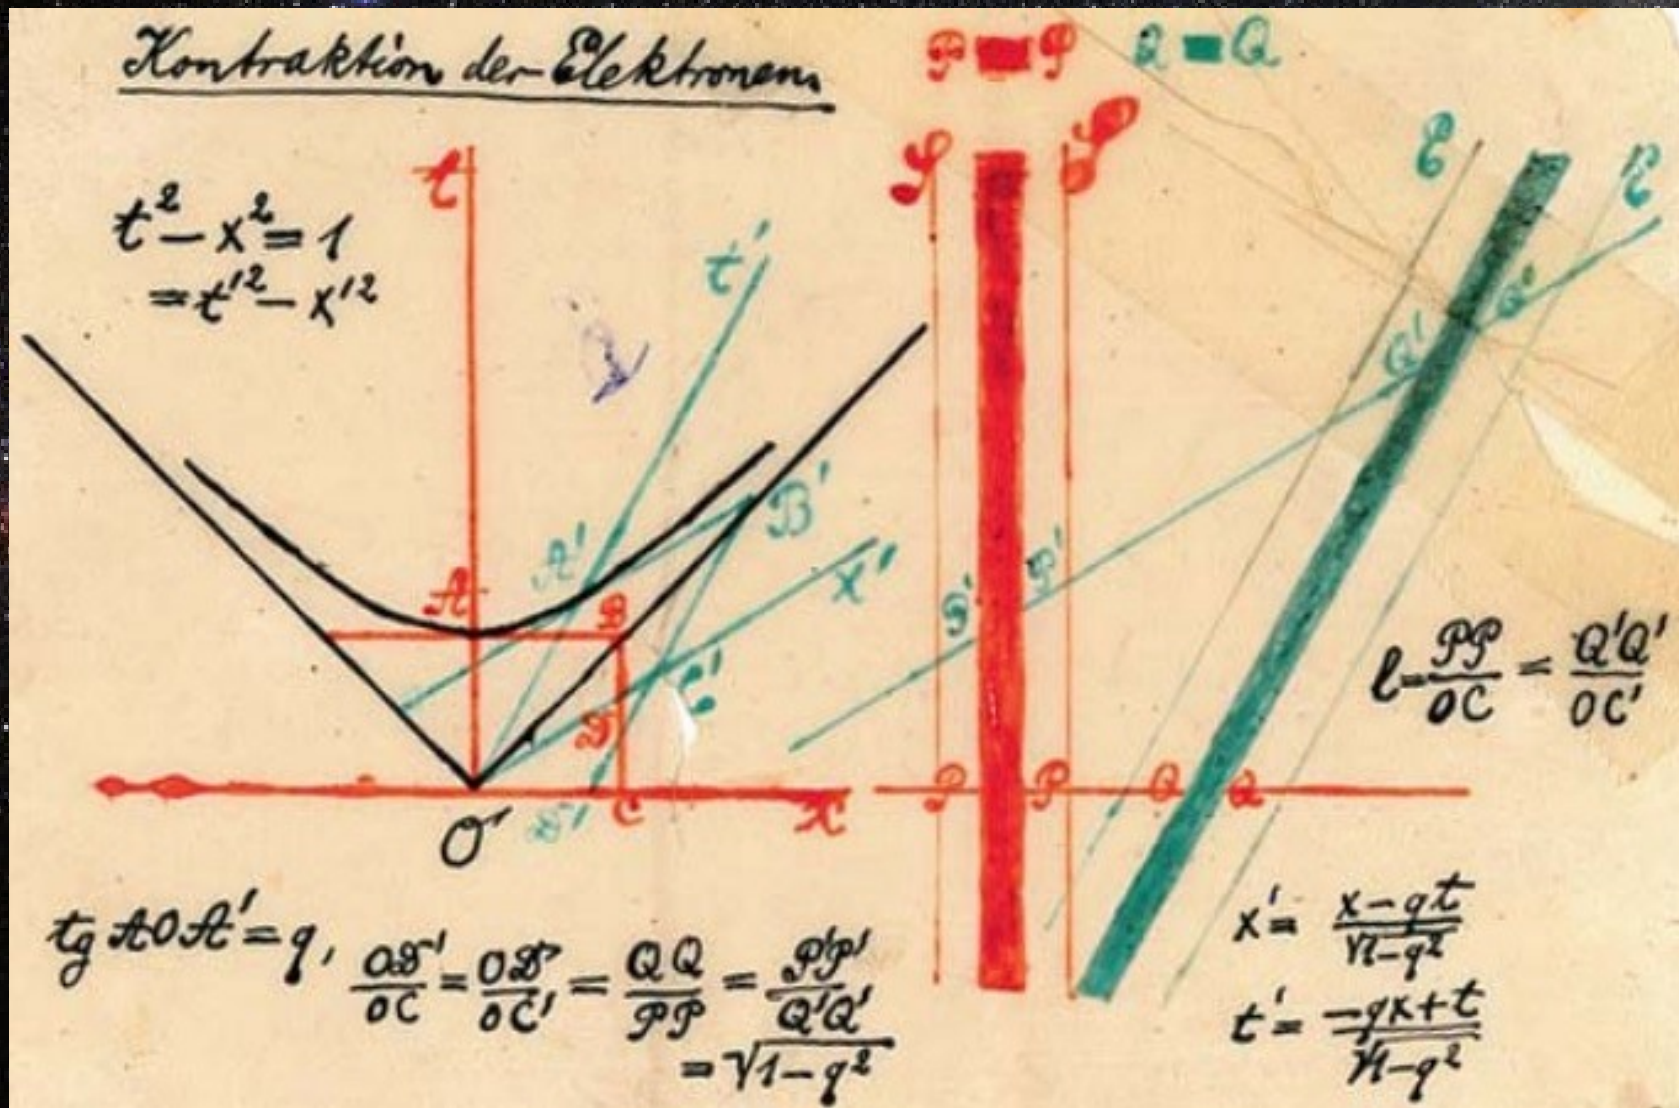 Kontraktion der Elektronen.
P P Q Q
t² − x² = 1
= t'² − x'²
t
t'
A
A'
B
B'
x'
C'
D
D'
C
x
O
P' P'
Q' Q'
P P Q Q
l = PP/OC = Q'Q'/OC'
tg AOA' = q, OD'/OC = OD/OC' = QQ/PP = P'P'/Q'Q'
= √1−q²
x' = x−qt/√1−q²
t' = −qx+t/√1−q²